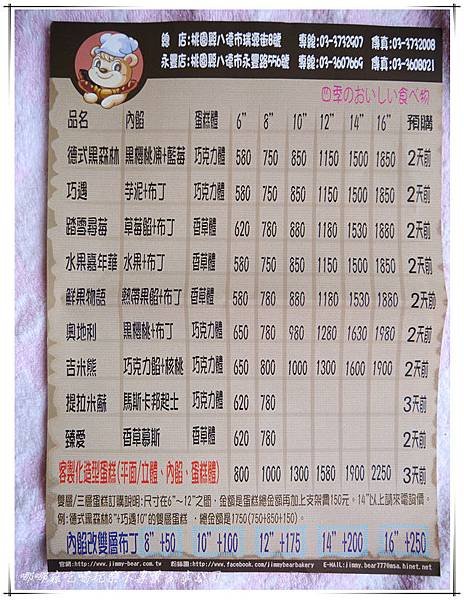 總 店:桃園縣八德市瑞源街8號 專線:03-3732907 傳真:03-3732008
永豐店:桃園縣八德市永豐路556號 專線:03-3607669 傳真:03-3608021
四季のおいしい食べ物
品名 內餡 蛋糕體 6" 8" 10" 12" 14" 16" 預購
德式黑森林 黑櫻桃凍+藍莓 巧克力體 580 750 850 1150 1500 1850 2天前
巧遇 芋泥+布丁 巧克力體 580 750 850 1150 1500 1850 2天前
踏雪尋莓 草莓餡+布丁 香草體 620 780 880 1180 1530 1880 2天前
水果嘉年華 水果+布丁 香草體 580 750 850 1150 1500 1850 2天前
鮮果物語 熱帶果餡+布丁 香草體 580 780 880 1180 1530 1880 2天前
奧地利 黑櫻桃+布丁 巧克力體 650 780 980 1280 1630 1980 2天前
吉米熊 巧克力餡+核桃 巧克力體 650 800 1000 1300 1600 1900 2天前
提拉米蘇 馬斯卡邦起士 巧克力體 620 780 3天前
臻愛 香草慕斯 香草體 620 780 2天前
客製化造型蛋糕(平面/立體、內餡、蛋糕體) 800 1000 1300 1580 1900 2250 3天前
雙層/三層蛋糕訂購說明:尺寸在6"~12"之間,金額是蛋糕總金額再加上支架費150元。14"以上請來電詢價。
例:德式黑森林8"+巧遇10"的雙層蛋糕,總金額是1750(750+850+150)。
內餡改雙層布丁 8" +50 10" +100 12" +175 14" +200 16" +250
官網:http://www.jimmy-bear.com.tw 粉絲團:http://www.facebook.com/jimmybearbakery E-MAIL:jimmy.bear777@msa.hinet.net